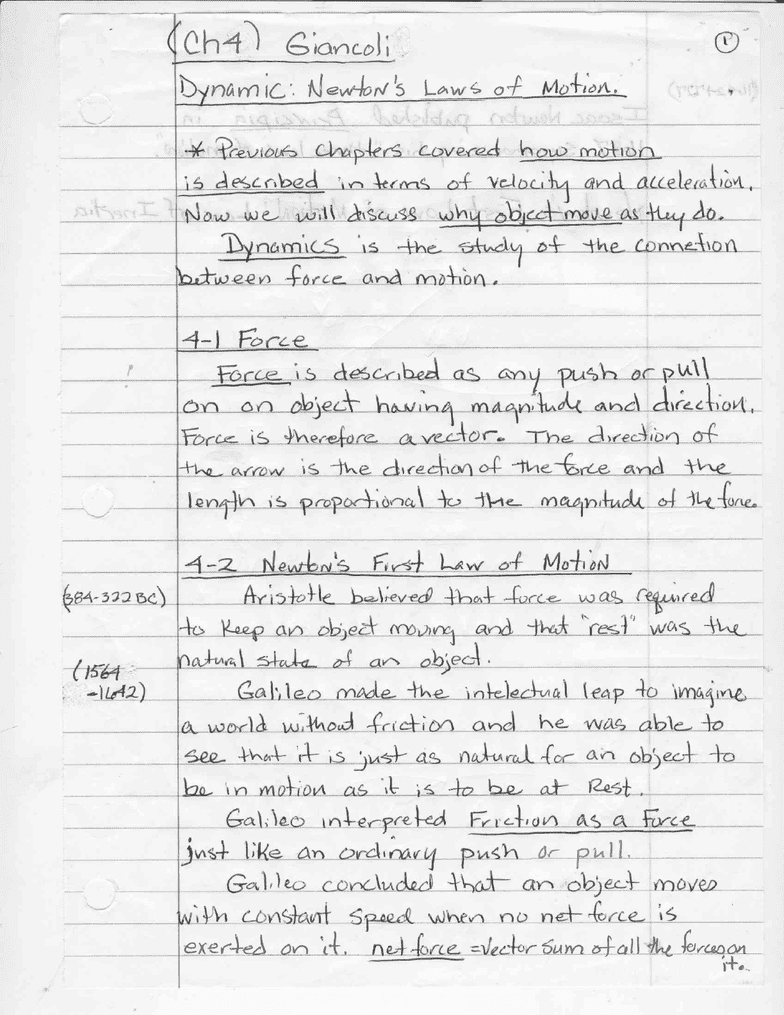 (Ch4) Giancoli
1
Dynamic: Newton's Laws of Motion.
* Previous chapters covered how motion
is described in terms of velocity and acceleration.
Now we will discuss why object move as they do.
Dynamics is the study of the connetion
between force and motion.
4-1 Force
Force is described as any push or pull
on on object having magnitude and direction.
Force is therefore a vector. The direction of
the arrow is the direction of the force and the
length is proportional to the magnitude of the force.
4-2 Newton's First Law of Motion
(384-322 BC) Aristotle believed that force was required
to keep an object moving and that "rest" was the
natural state of an object.
(1564
-1642) Galileo made the intelectual leap to imagine
a world without friction and he was able to
see that it is just as natural for an object to
be in motion as it is to be at Rest.
Galileo interpreted Friction as a Force
just like an ordinary push or pull.
Galileo concluded that an object moves
with constant speed when no net force is
exerted on it. net force = vector sum of all the forces on
it.